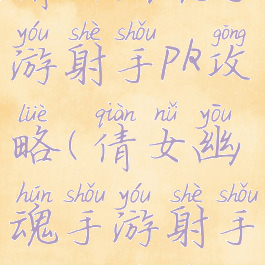 yóu shè shǒu gōng
游射手PK攻
lüè qiàn nǚ yōu
略(倩女幽
hún shǒu yóu shè shǒu
魂手游射手